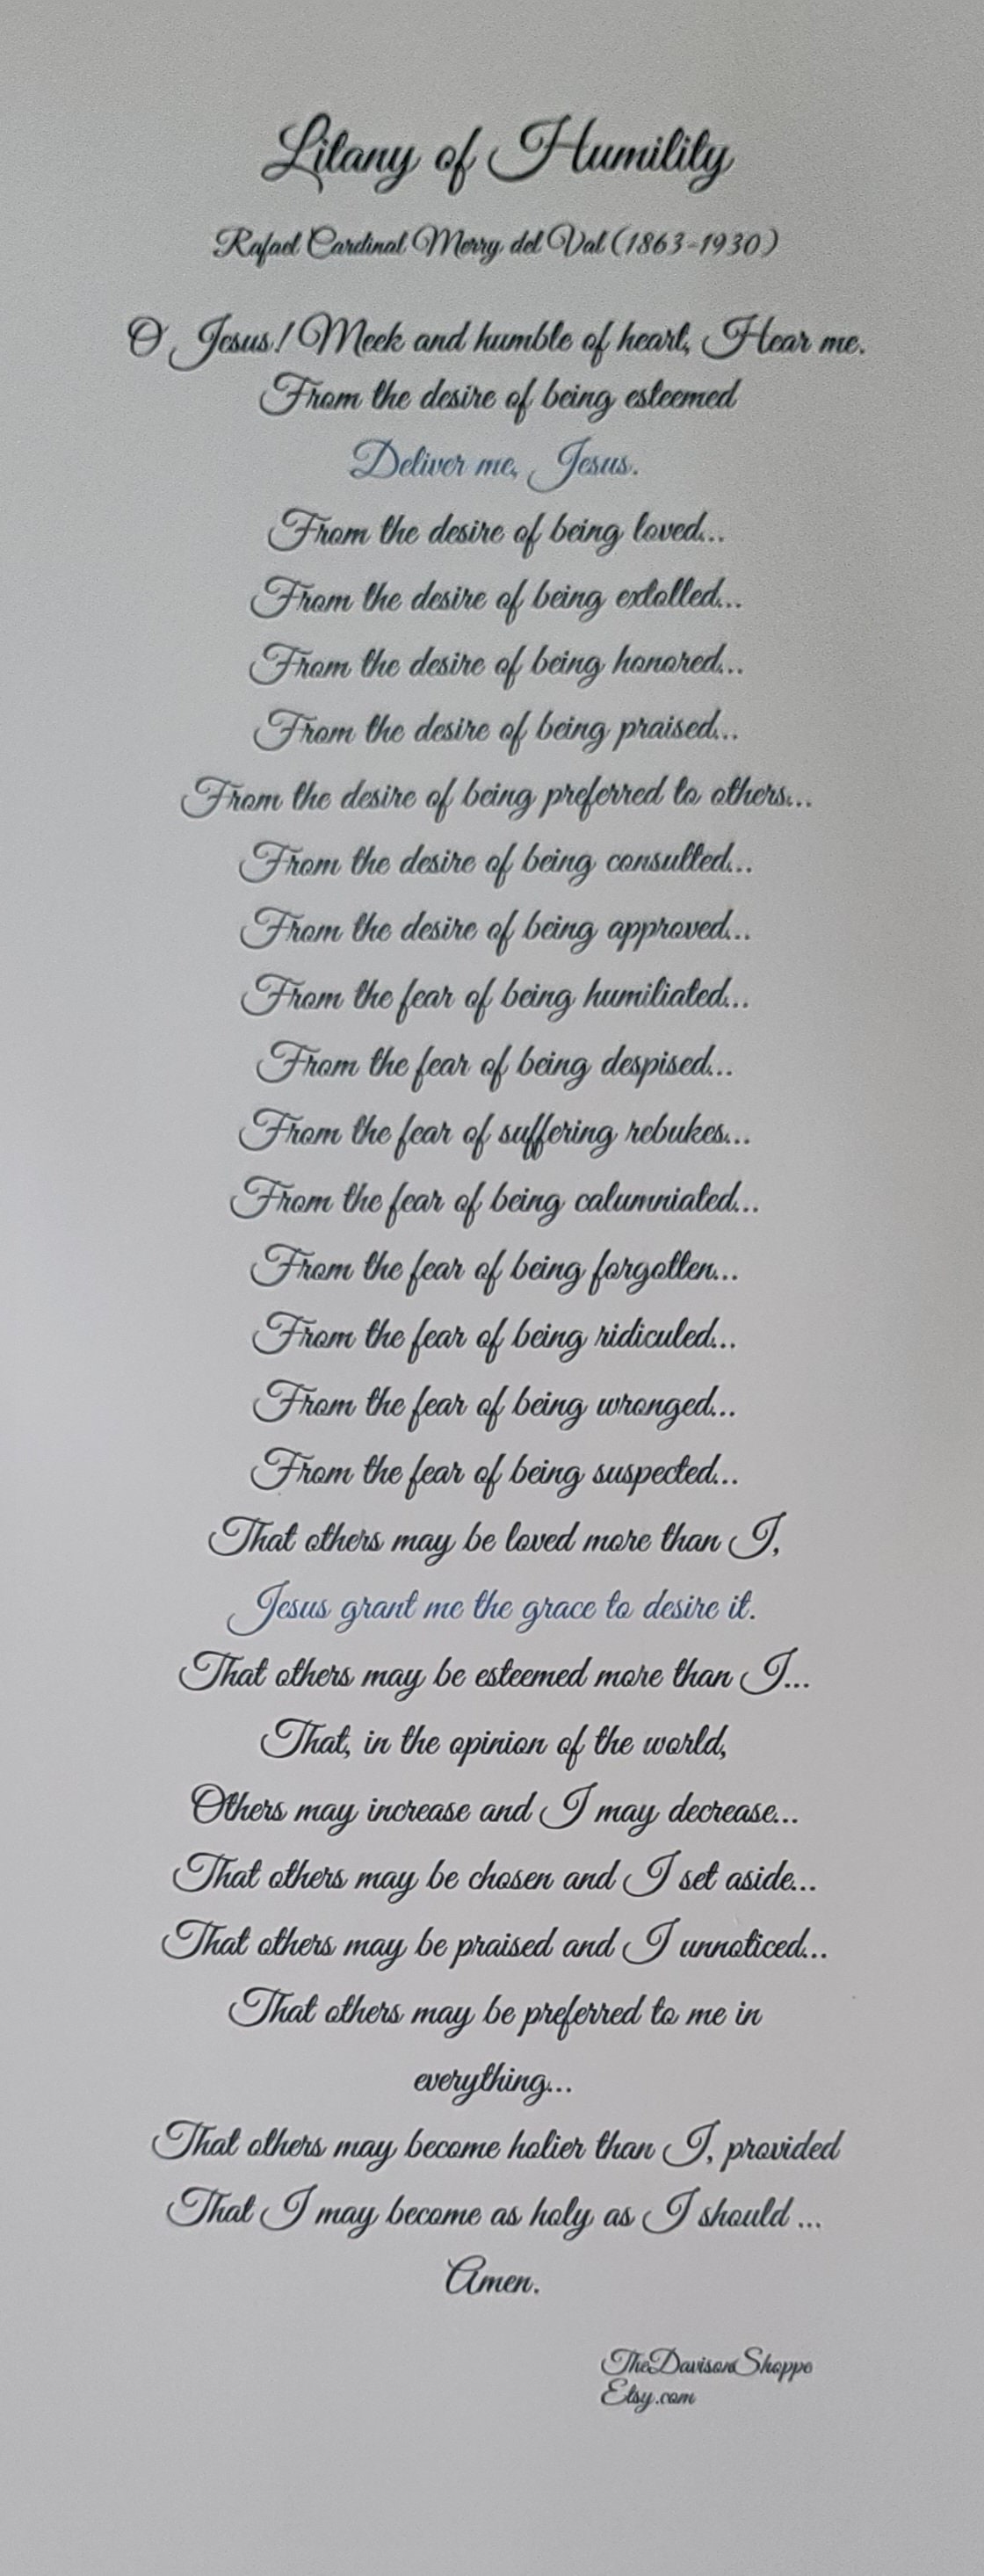 Litany of Humility
Rafael Cardinal Merry del Val (1863-1930)
O Jesus! Meek and humble of heart, Hear me.
From the desire of being esteemed
Deliver me, Jesus.
From the desire of being loved...
From the desire of being extolled...
From the desire of being honored...
From the desire of being praised...
From the desire of being preferred to others...
From the desire of being consulted...
From the desire of being approved...
From the fear of being humiliated...
From the fear of being despised...
From the fear of suffering rebukes...
From the fear of being calumniated...
From the fear of being forgotten...
From the fear of being ridiculed...
From the fear of being wronged...
From the fear of being suspected...
That others may be loved more than I,
Jesus grant me the grace to desire it.
That others may be esteemed more than I...
That, in the opinion of the world,
Others may increase and I may decrease...
That others may be chosen and I set aside...
That others may be praised and I unnoticed...
That others may be preferred to me in
everything...
That others may become holier than I, provided
That I may become as holy as I should ...
Amen.
TheDavisonShoppe
Etsy.com